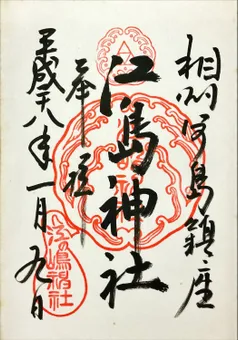 相州江島鎮座
奉拝
江島神社
平成二十八年一月九日
江の嶋神社